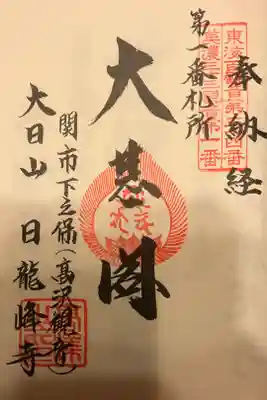 奉納経
第一番札所
大悲閣
関市下之保(高沢観音)
大日山 日龍峰寺
美濃三十三霊場第一番